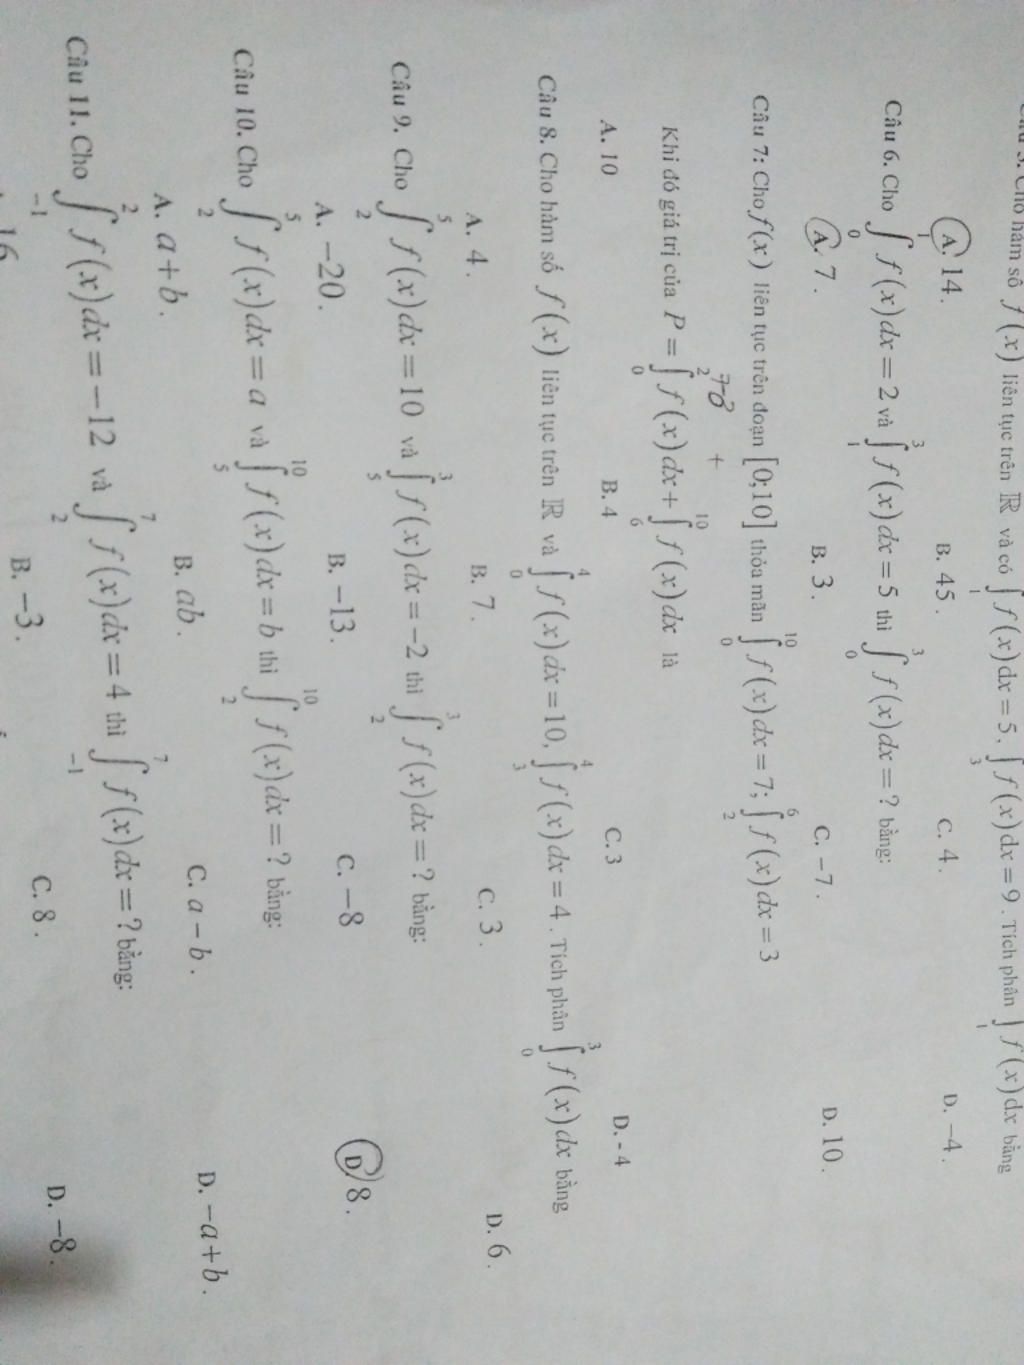 hàm số f(x) liên tục trên ℝ và có ∫₁ f(x)dx = 5, ∫₃ f(x)dx = 9. Tích phân ∫₁ f(x)dx bằng
A. 14. B. 45. C. 4. D. −4.
Câu 6. Cho ∫₀¹ f(x)dx = 2 và ∫₁³ f(x)dx = 5 thì ∫₀³ f(x)dx = ? bằng:
A. 7. B. 3. C. −7. D. 10.
Câu 7: Cho f(x) liên tục trên đoạn [0;10] thỏa mãn ∫₀¹⁰ f(x)dx = 7; ∫₂⁶ f(x)dx = 3
+
Khi đó giá trị của P = ∫₀² f(x)dx + ∫₆¹⁰ f(x)dx là
A. 10 B. 4 C. 3 D. - 4
Câu 8. Cho hàm số f(x) liên tục trên ℝ và ∫₀⁴ f(x)dx = 10, ∫₃⁴ f(x)dx = 4. Tích phân ∫₀³ f(x)dx bằng
A. 4. B. 7. C. 3. D. 6.
Câu 9. Cho ∫₂⁵ f(x)dx = 10 và ∫₅³ f(x)dx = −2 thì ∫₂³ f(x)dx = ? bằng:
A. −20. B. −13. C. −8 D. 8.
Câu 10. Cho ∫₂⁵ f(x)dx = a và ∫₅¹⁰ f(x)dx = b thì ∫₂¹⁰ f(x)dx = ? bằng:
A. a + b. B. ab. C. a − b. D. −a + b.
Câu 11. Cho ∫₋₁² f(x)dx = −12 và ∫₂⁷ f(x)dx = 4 thì ∫₋₁⁷ f(x)dx = ? bằng:
16 B. −3. C. 8. D. −8.